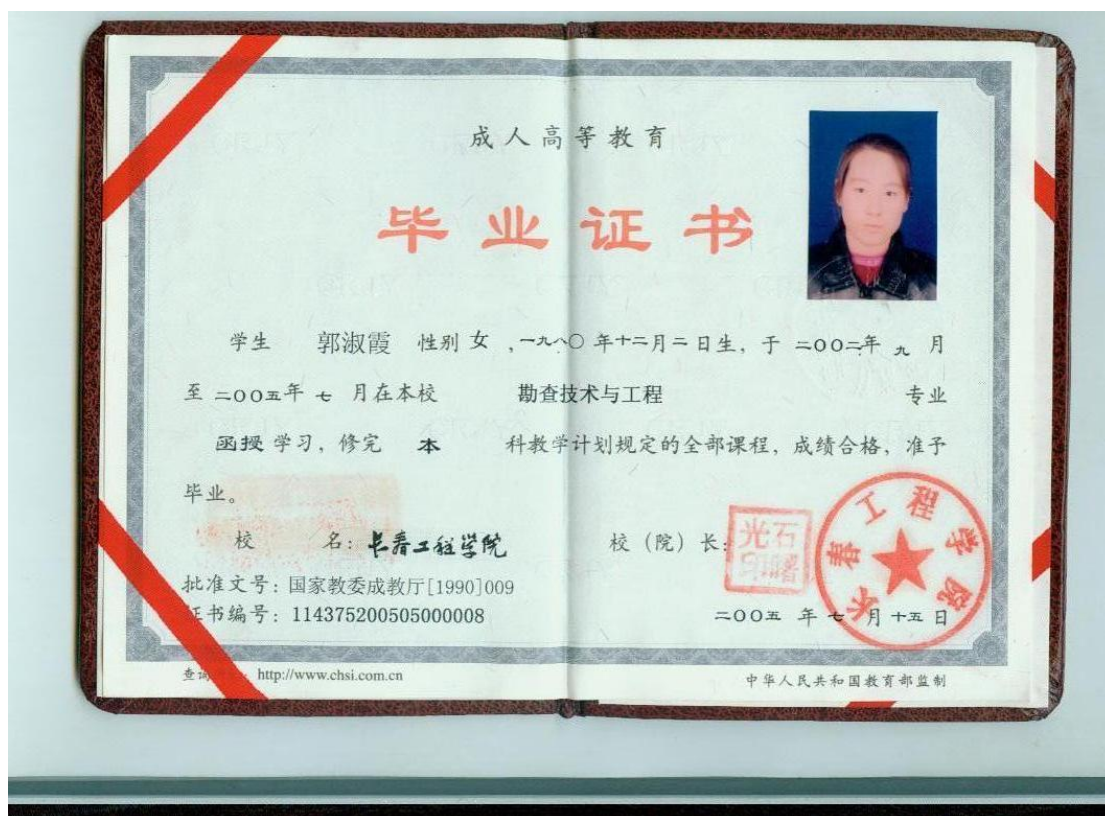 成人高等教育
毕业证书
学生 郭淑霞 性别 女 ,一九八〇 年十二月二日生, 于 二〇〇二年 九 月
至 二〇〇五年 七 月在本校 勘查技术与工程 专业
函授 学习, 修完 本 科教学计划规定的全部课程, 成绩合格, 准予
毕业。
校 名: 长春工程学院 校 (院) 长:
光石
印曙
长春工程学院
批准文号: 国家教委成教厅[1990]009
证书编号: 114375200505000008
二〇〇五 年 七 月 十五 日
http://www.chsi.com.cn
中华人民共和国教育部监制